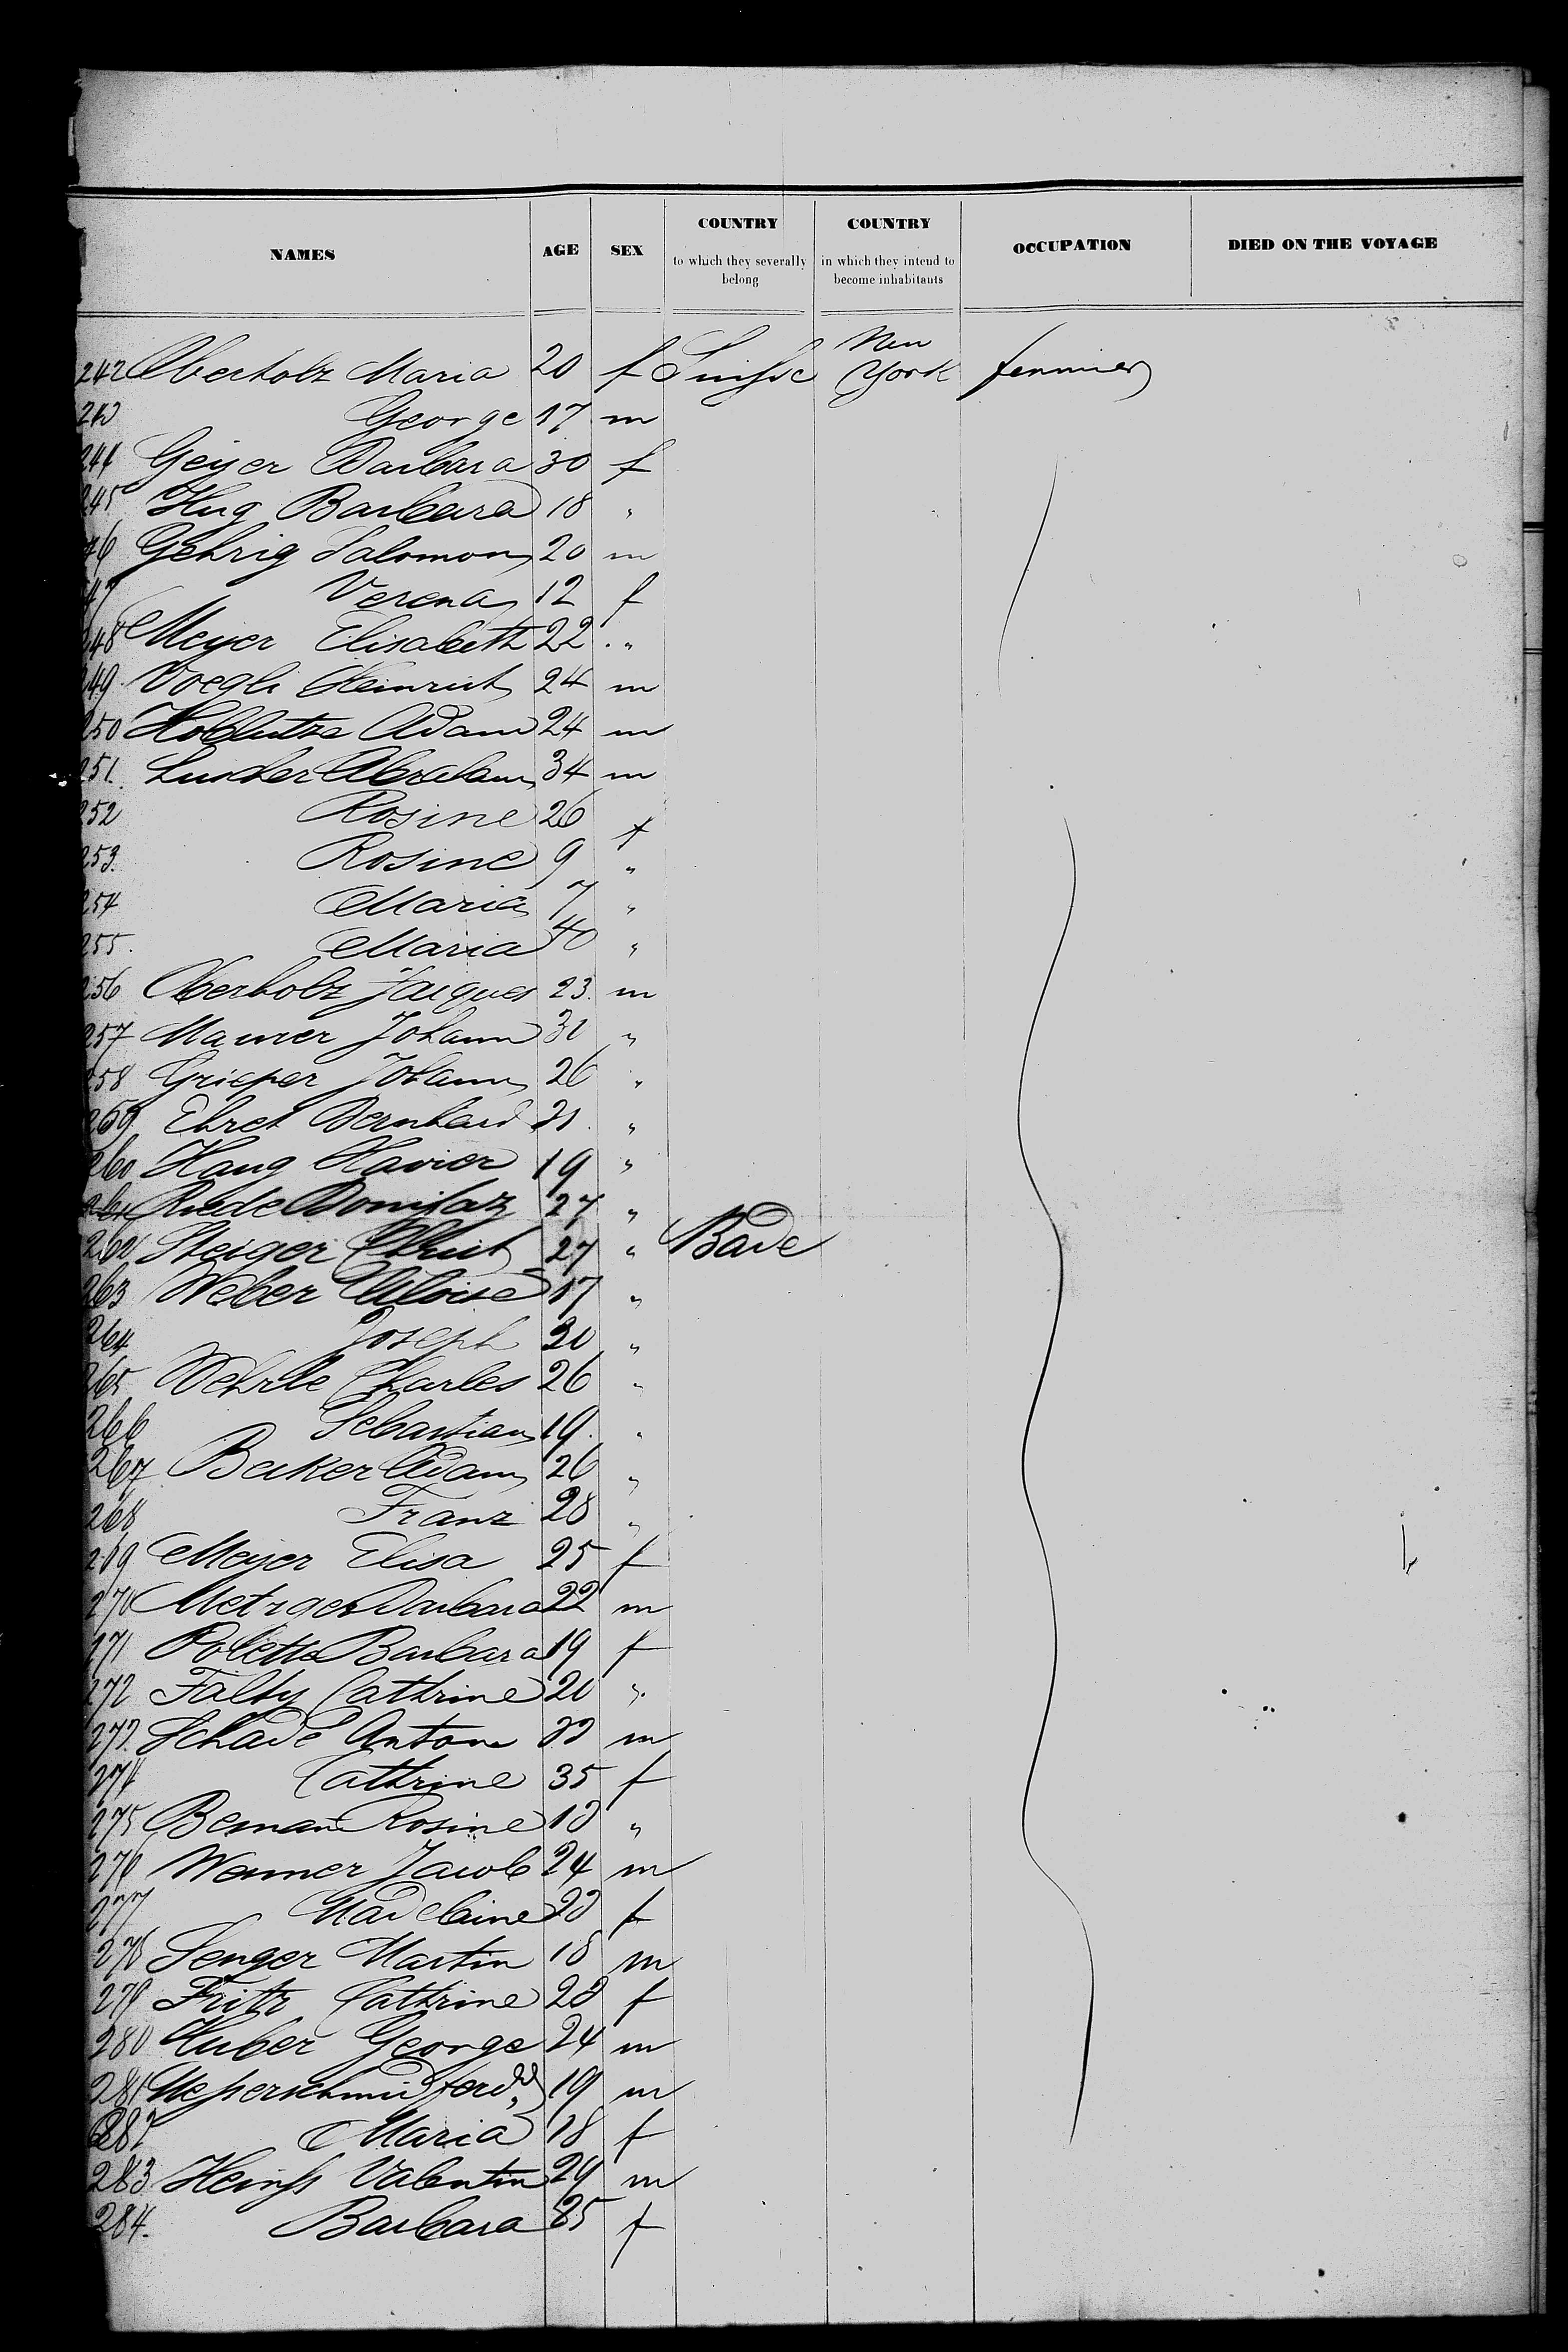 NAMES AGE SEX COUNTRY to which they severally belong COUNTRY in which they intend to become inhabitants OCCUPATION DIED ON THE VOYAGE
242 Oberholz Maria 20 f Suisse New York fermier
243 George 17 m
244 Geyer Barbara 30 f
245 Hug Barbara 18 "
246 Gehrig Salomon 20 m
247 Verena 12 f
248 Meyer Elisabeth 22 "
249 Voegli Heinrich 24 m
250 Adam 24 m
251 Luscher Abraham 34 m
252 Rosine 26 f
253. Rosine 9 "
254 Maria 7 "
255. Maria 40 "
256 Oberholz Jacques 23. m
257 Maurer Johann 31 "
258 Grieper Johann 26 "
259 Ehret Bernhard 21. "
260 Haug Xavier 19 "
261 Ruede Bonifaz 27 "
262 Steiger Christ 27 " Bade
263 Weber Aloise 17 "
264 Joseph 30 "
265 Wehrle Charles 26 "
266 Sebastian 19. "
267 Becker Adam 26 "
268 Franz 28 "
269 Meyer Elisa 25 f
270 Metzger Barbara 22 m
271 Barbara 19 f
272 Falty Cathrine 20 "
273. Schade Anton 33 m
274 Cathrine 35 f
275 Beman Rosine 18 "
276 Wenner Jacob 24 m
277 Madelaine 23 f
278 Senger Martin 18 m
279 Fritz Cathrine 23 f
280 Huber George 24 m
281 Messerschmid ferdd 19 m
282 Maria 18 f
283 Heinss Valentin 29 m
284. Barbara 25 f